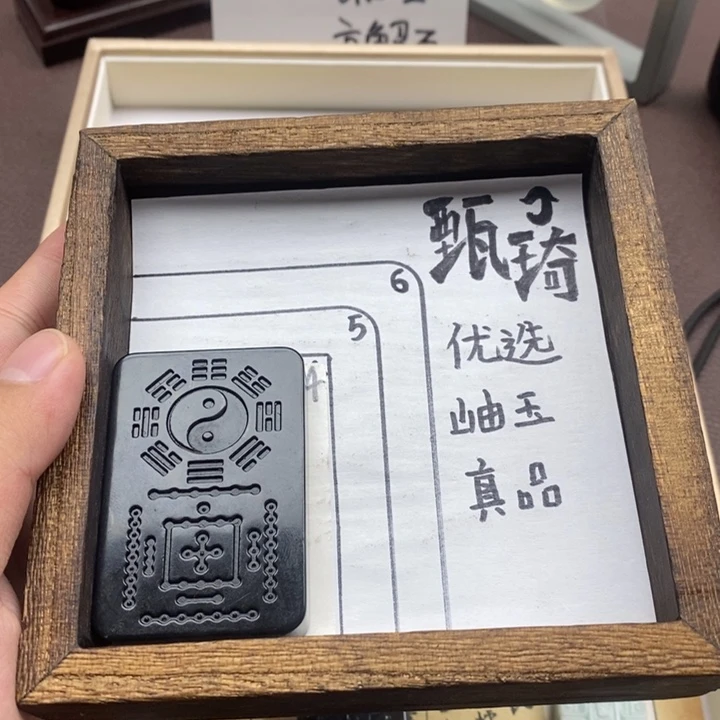 甄琦
优选
岫玉
真品
6
5
4